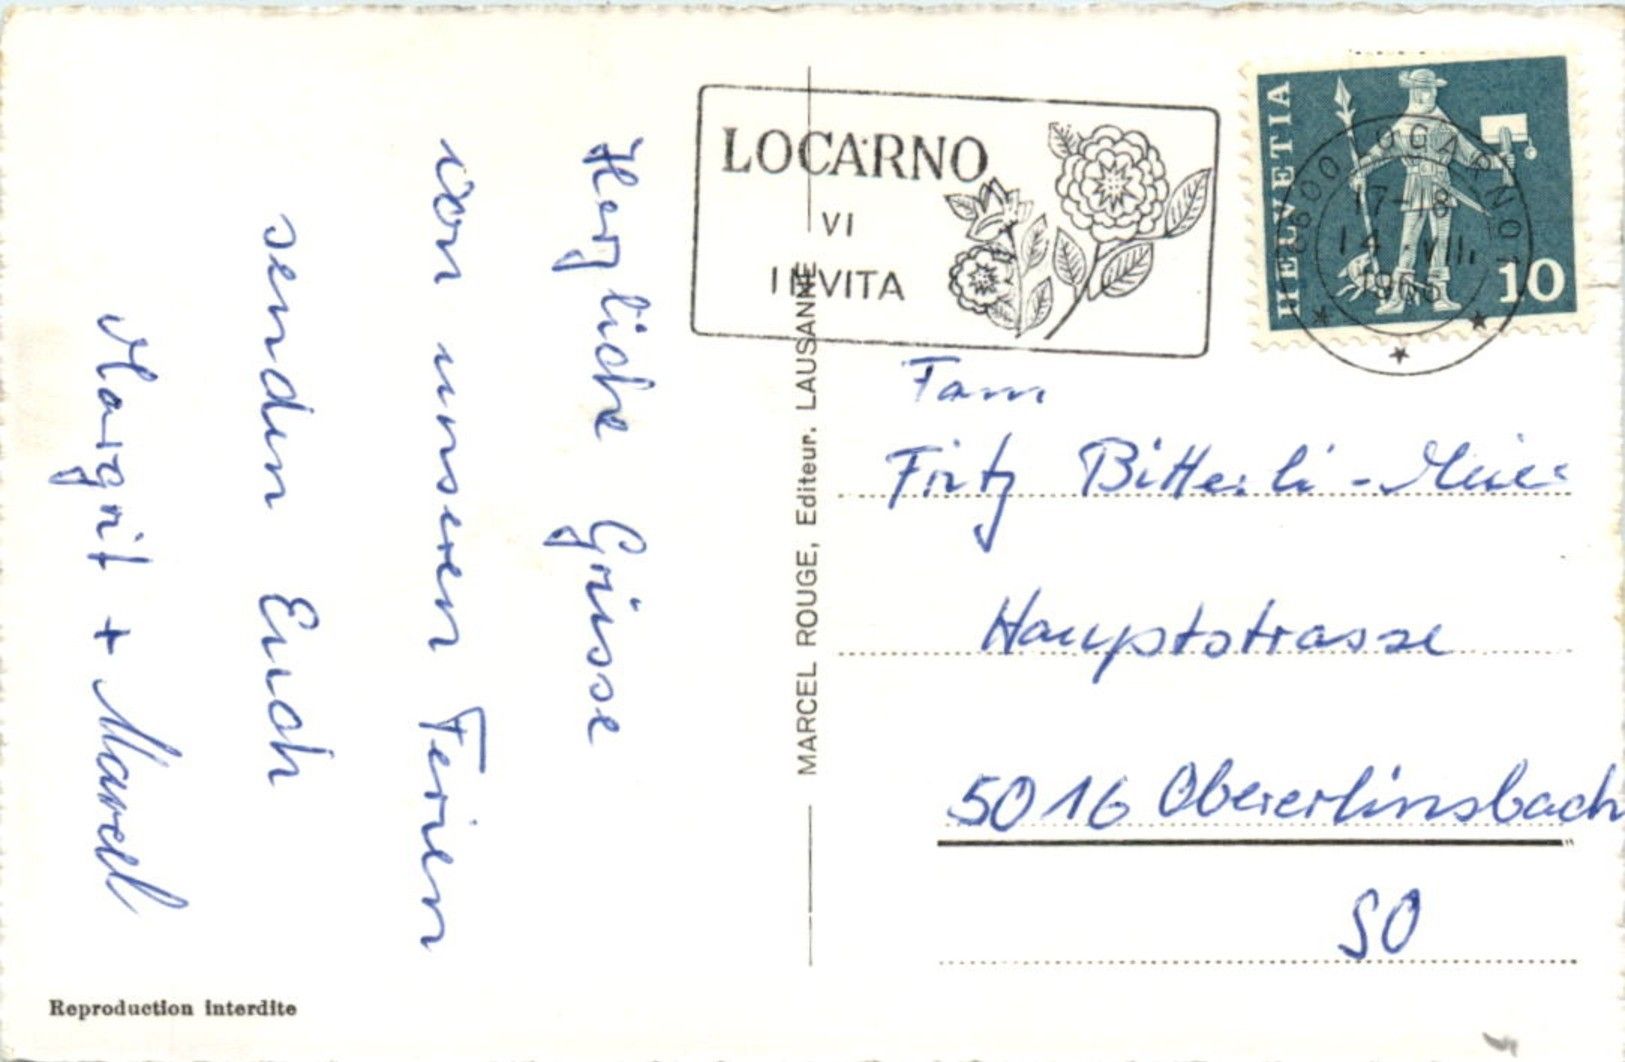 Herzliche Grüsse
von unseren Ferien
senden Euch
Margrit + Marcel
Reproduction interdite
MARCEL ROUGE, Editeur. LAUSANNE
LOCARNO
VI
INVITA
HELVETIA
10
6600 LOCARNO 1
17-8
14.VIII.
Fam
Fritz Bitterli-Meier
Hauptstrasse
5016 Obererlinsbach
SO